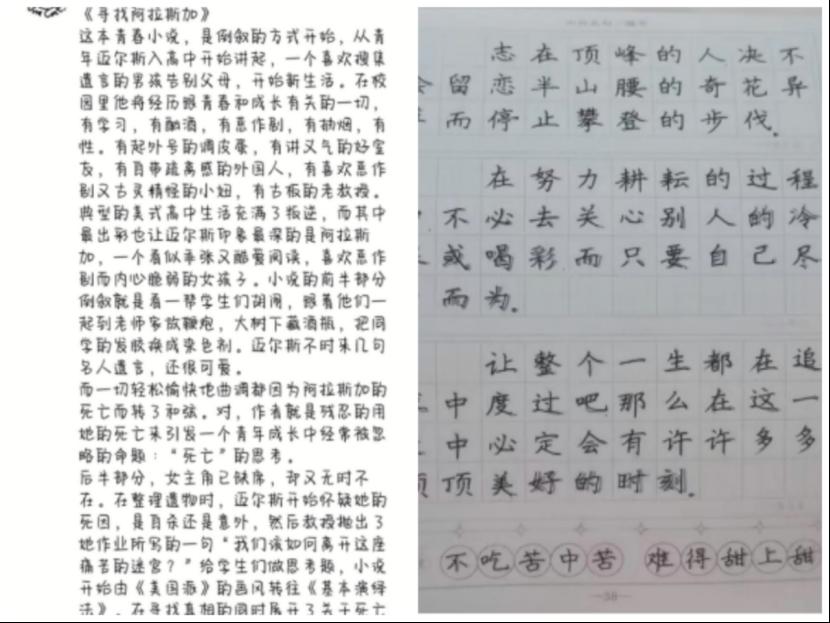 《寻找阿拉斯加》
这本青春小说，是倒叙的方式开始，从青
年迈尔斯入高中开始讲起，一个喜欢搜集
遗言的男孩告别父母，开始新生活。在校
园里他将经历跟青春和成长有关的一切，
有学习，有酗酒，有恶作剧，有抽烟，有
性。有起外号的调皮蛋，有讲义气的好室
友，有自带疏离感的外国人，有喜欢恶作
剧又古灵精怪的小妞，有古板的老教授。
典型的美式高中生活充满了叛逆，而其中
最出彩也让迈尔斯印象最深的是阿拉斯
加，一个看似乖张又酷爱阅读，喜欢恶作
剧而内心脆弱的女孩子。小说的前半部分
倒叙就是看一帮学生们胡闹，跟着他们一
起到老师家放鞭炮，大树下藏酒瓶，把同
学的发胶换成染色剂。迈尔斯不时来几句
名人遗言，还很可爱。
而一切轻松愉快地曲调都因为阿拉斯加的
死亡而转了和弦。对，作者就是残忍的用
她的死亡来引发一个青年成长中经常被忽
略的命题：“死亡”的思考。
后半部分，女主角已缺席，却又无时不
在。在整理遗物时，迈尔斯开始怀疑她的
死因，是自杀还是意外，然后教授抛出了
她作业所写的一句“我们该如何离开这座
痛苦的迷宫？”给学生们做思考题，小说
开始由《美国派》的画风转往《基本演绎
法》。在寻找真相的同时展开了关于死亡
志在顶峰的人决不
留恋半山腰的奇花异
而停止攀登的步伐。
在努力耕耘的过程
不必去关心别人的冷
或喝彩而只要自己尽
而为。
让整个一生都在追
中度过吧那么在这一
中必定会有许许多多
顶美好的时刻。
不吃苦中苦 难得甜上甜
—38—